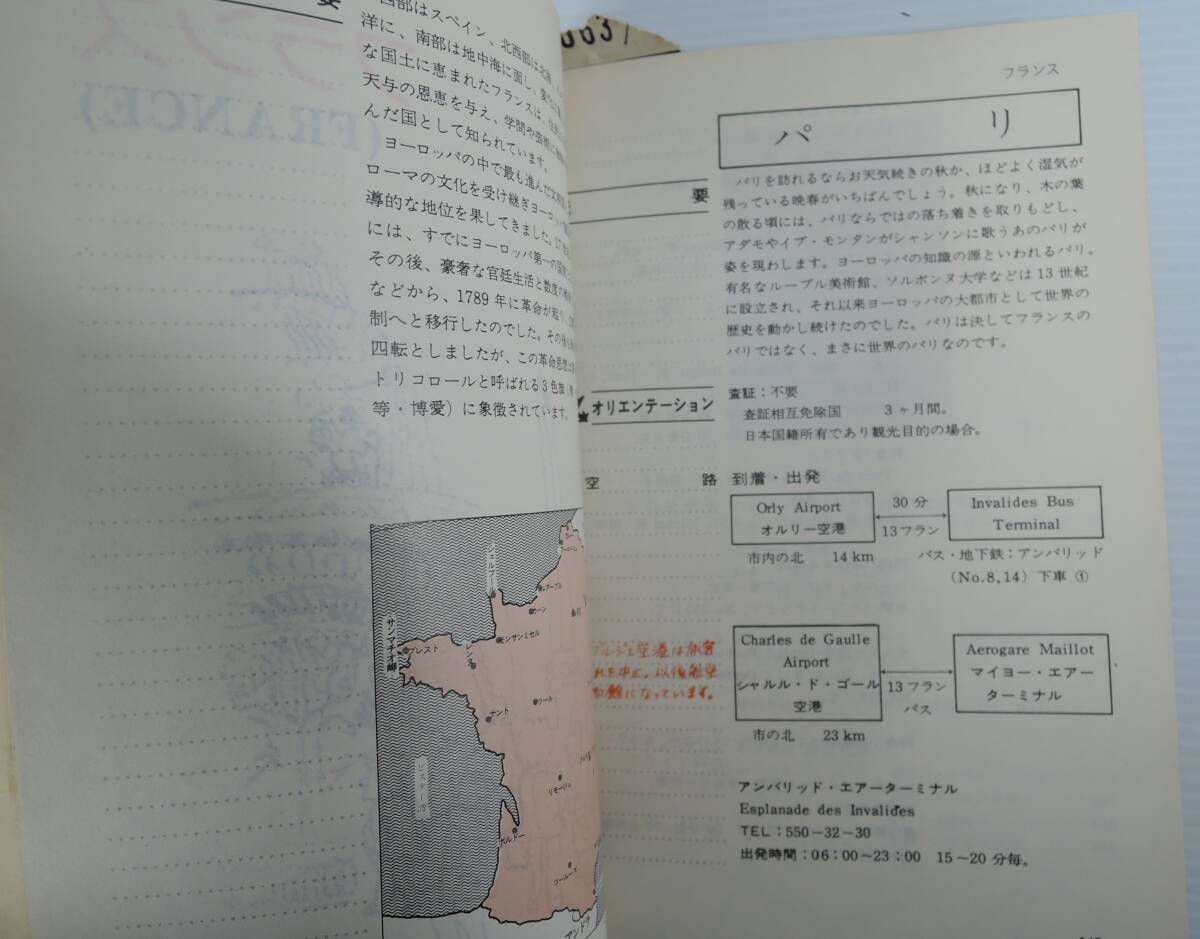 要
西部はスペイン、北西部は北海、
洋に、南部は地中海に面し、
な国土に恵まれたフランスは、
天与の恩恵を与え、学問や芸術に
んだ国として知られています。
ヨーロッパの中で最も進んだ文
ローマの文化を受け継ぎヨーロッパ
導的な地位を果してきました。17世
には、すでにヨーロッパ第一の
その後、豪奢な官廷生活と数度の
などから、1789年に革命が起り、
制へと移行したのでした。その後も
四転としましたが、この革命思想は
トリコロールと呼ばれる3色旗(
等・博愛)に象徴されています。
シェルブール
ルアーブル
カーン
サンマチオ岬
ブレスト
モンサンミセル
レンヌ
ナント
ツール
ビスケー湾
リモージュ
ボルドー
ツールーズ
アンドラ
6637
フランス
パリ
要
パリを訪れるならお天気続きの秋か、ほどよく湿気が
残っている晩春がいちばんでしょう。秋になり、木の葉
の散る頃には、パリならではの落ち着きを取りもどし、
アダモやイブ・モンタンがシャンソンに歌うあのパリが
姿を現わします。ヨーロッパの知識の源といわれるパリ。
有名なルーブル美術館、ソルボンヌ大学などは13世紀
に設立され、それ以来ヨーロッパの大都市として世界の
歴史を動かし続けたのでした。パリは決してフランスの
パリではなく、まさに世界のパリなのです。
オリエンテーション
査証:不要
査証相互免除国 3ヶ月間。
日本国籍所有であり観光目的の場合。
空路
到着・出発
Orly Airport
オルリー空港
30分
13フラン
Invalides Bus
Terminal
市内の北 14km
バス・地下鉄:アンバリッド
(No.8,14)下車 ①
ブルジェ空港は旅客
れを中止。以後航空
館になっています。
Charles de Gaulle
Airport
シャルル・ド・ゴール
空港
13フラン
バス
Aerogare Maillot
マイヨー・エアー
ターミナル
市の北 23km
アンバリッド・エアーターミナル
Esplanade des Invalides
TEL:550-32-30
出発時間:06:00~23:00 15~20分毎。